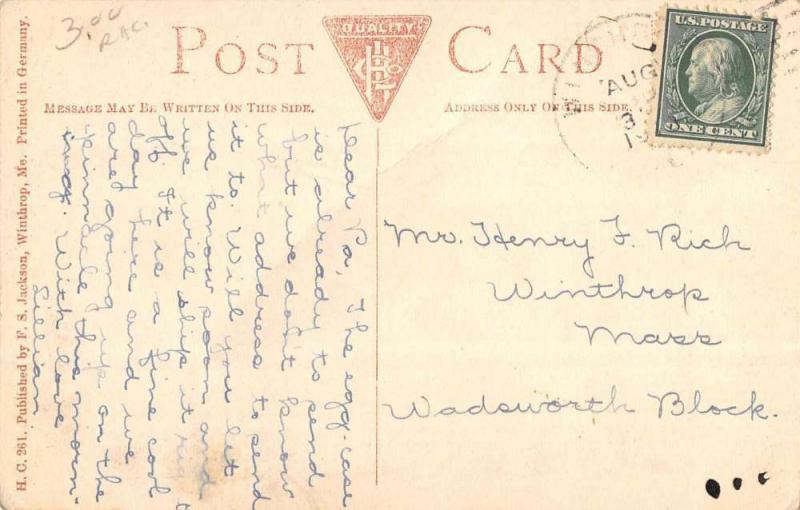 3.00
RAC.
POST CARD
QUALITY
MESSAGE MAY BE WRITTEN ON THIS SIDE.
ADDRESS ONLY ON THIS SIDE.
U.S. POSTAGE
ONE CENT
AUG
3
Dear Pa, The egg-case
is already to send
but we don't know
what address to send
it to. Will you let
us know soon and
we will ship it right
off. It is a fine cool
day here and we
are going up on the
pinnacle this morn-
ing. With love
Lillian
Mr. Henry F. Rich
Winthrop
Mass
Wadsworth Block.
H. C. 261. Published by F. S. Jackson, Winthrop, Me. Printed in Germany.